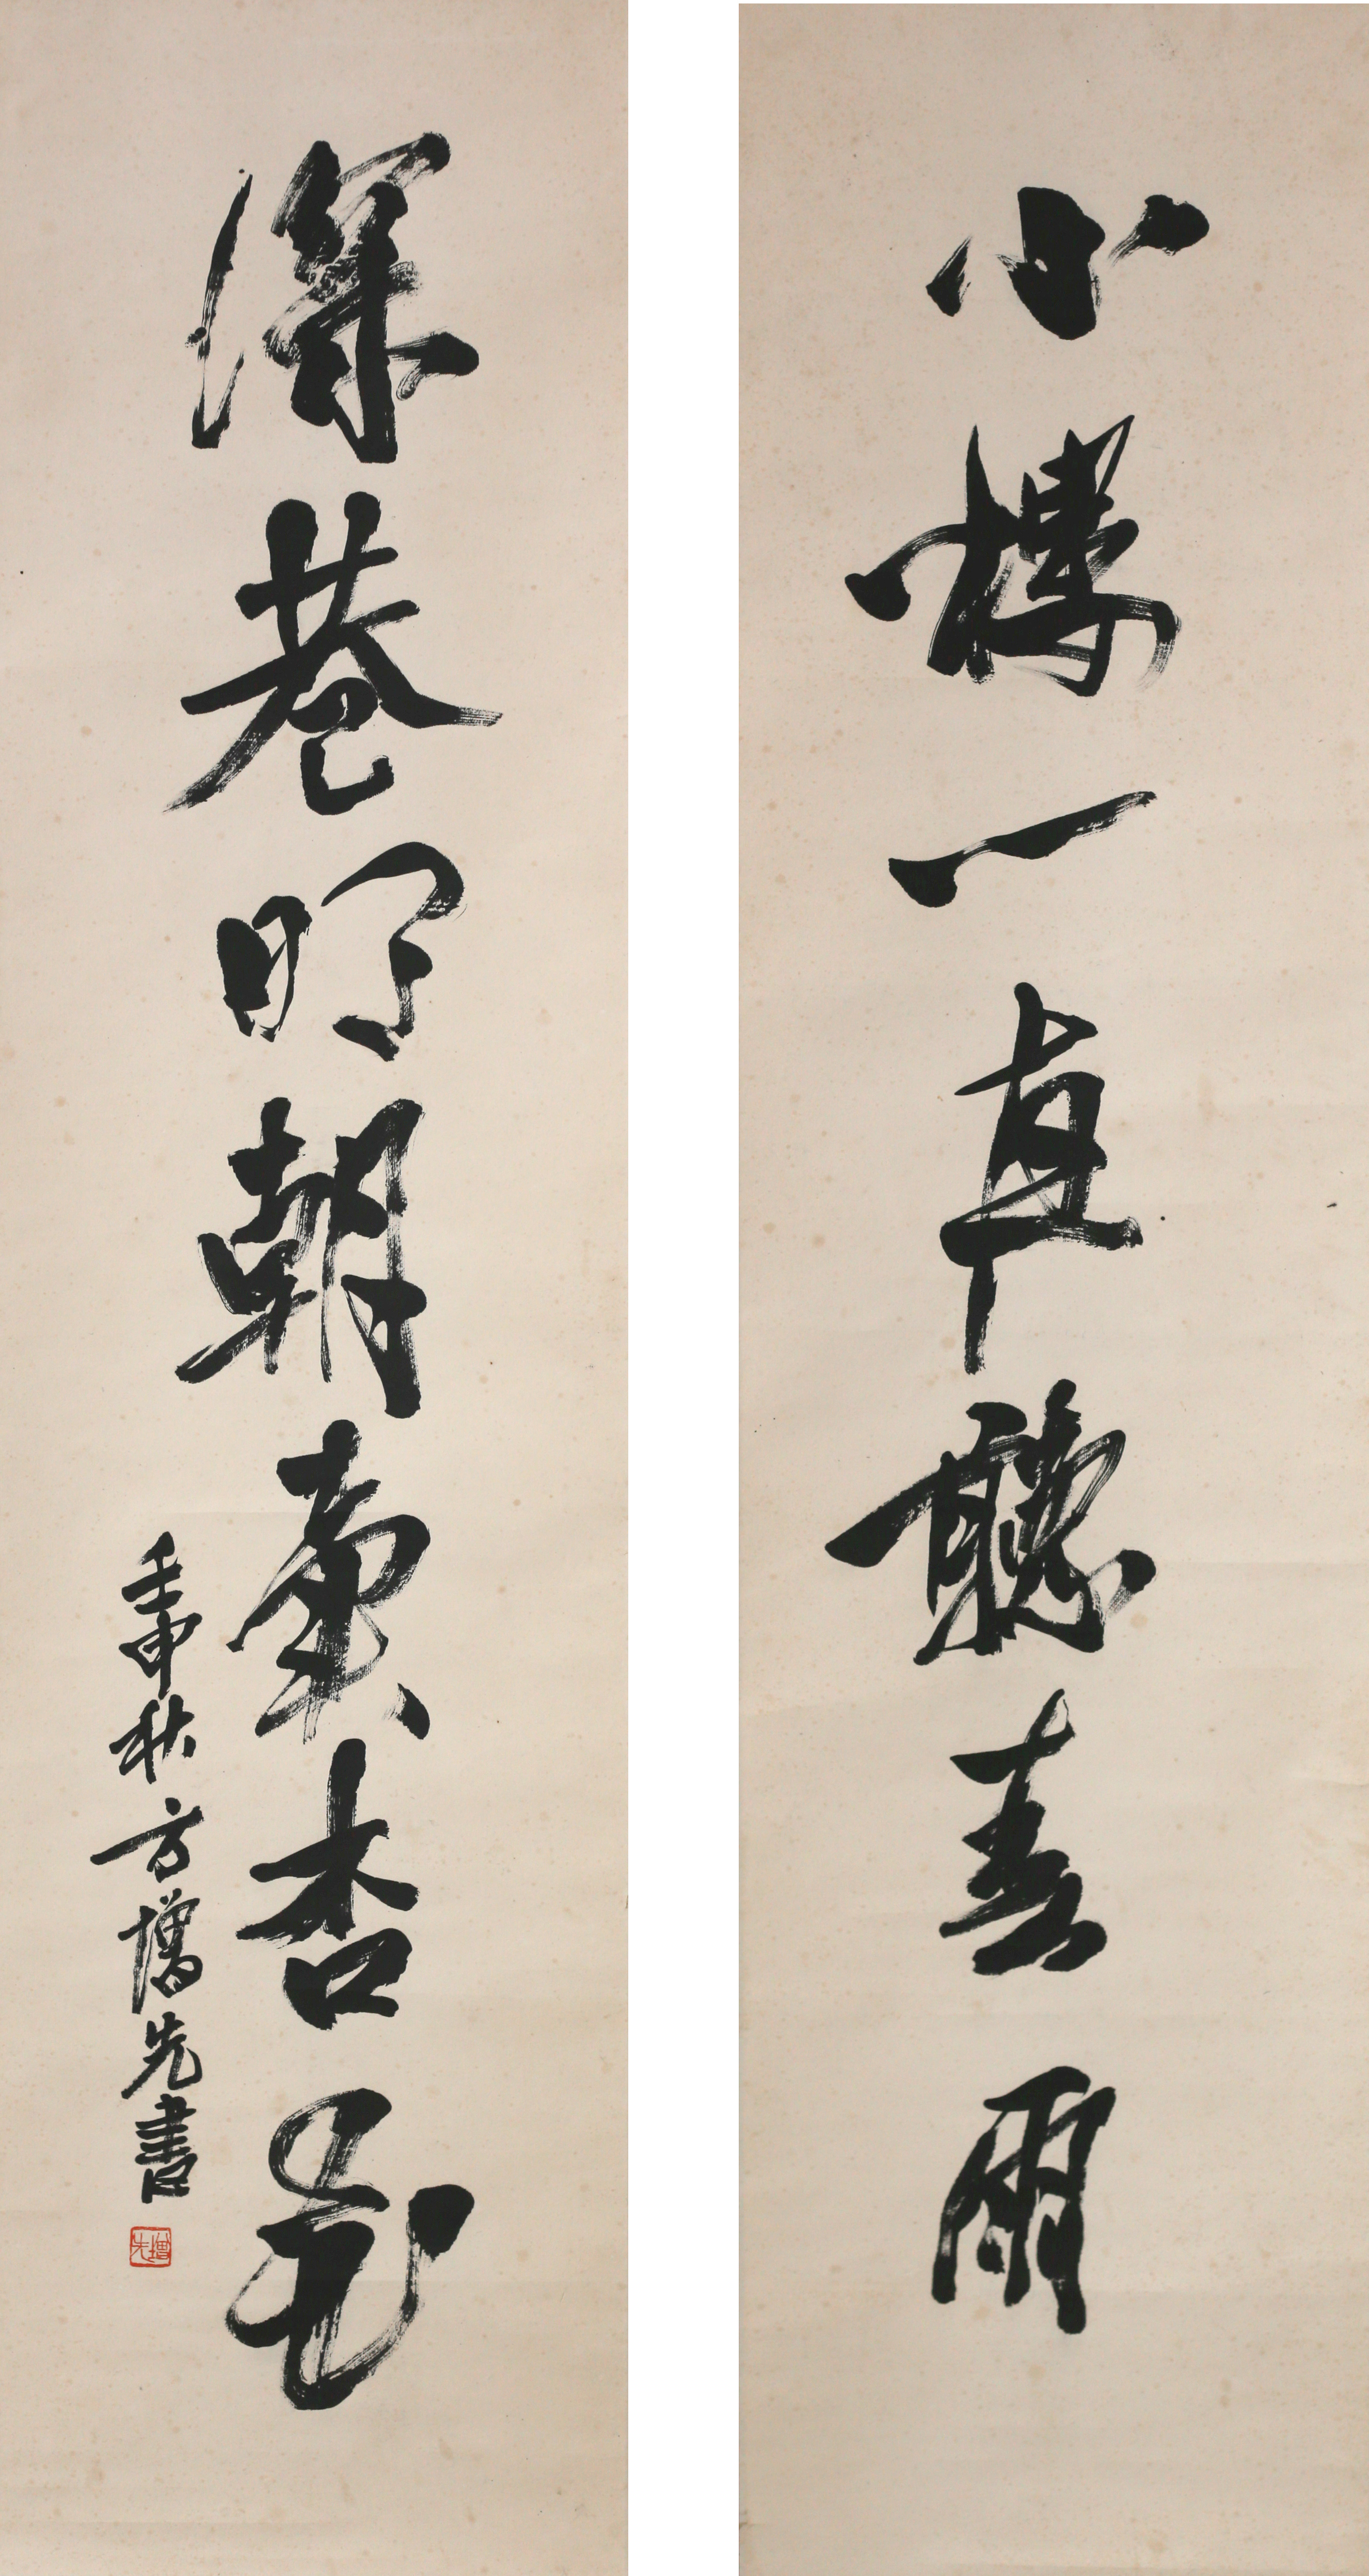 小樓一亱聽春雨
深巷明朝賣杏花
壬申秋方增先書
增先